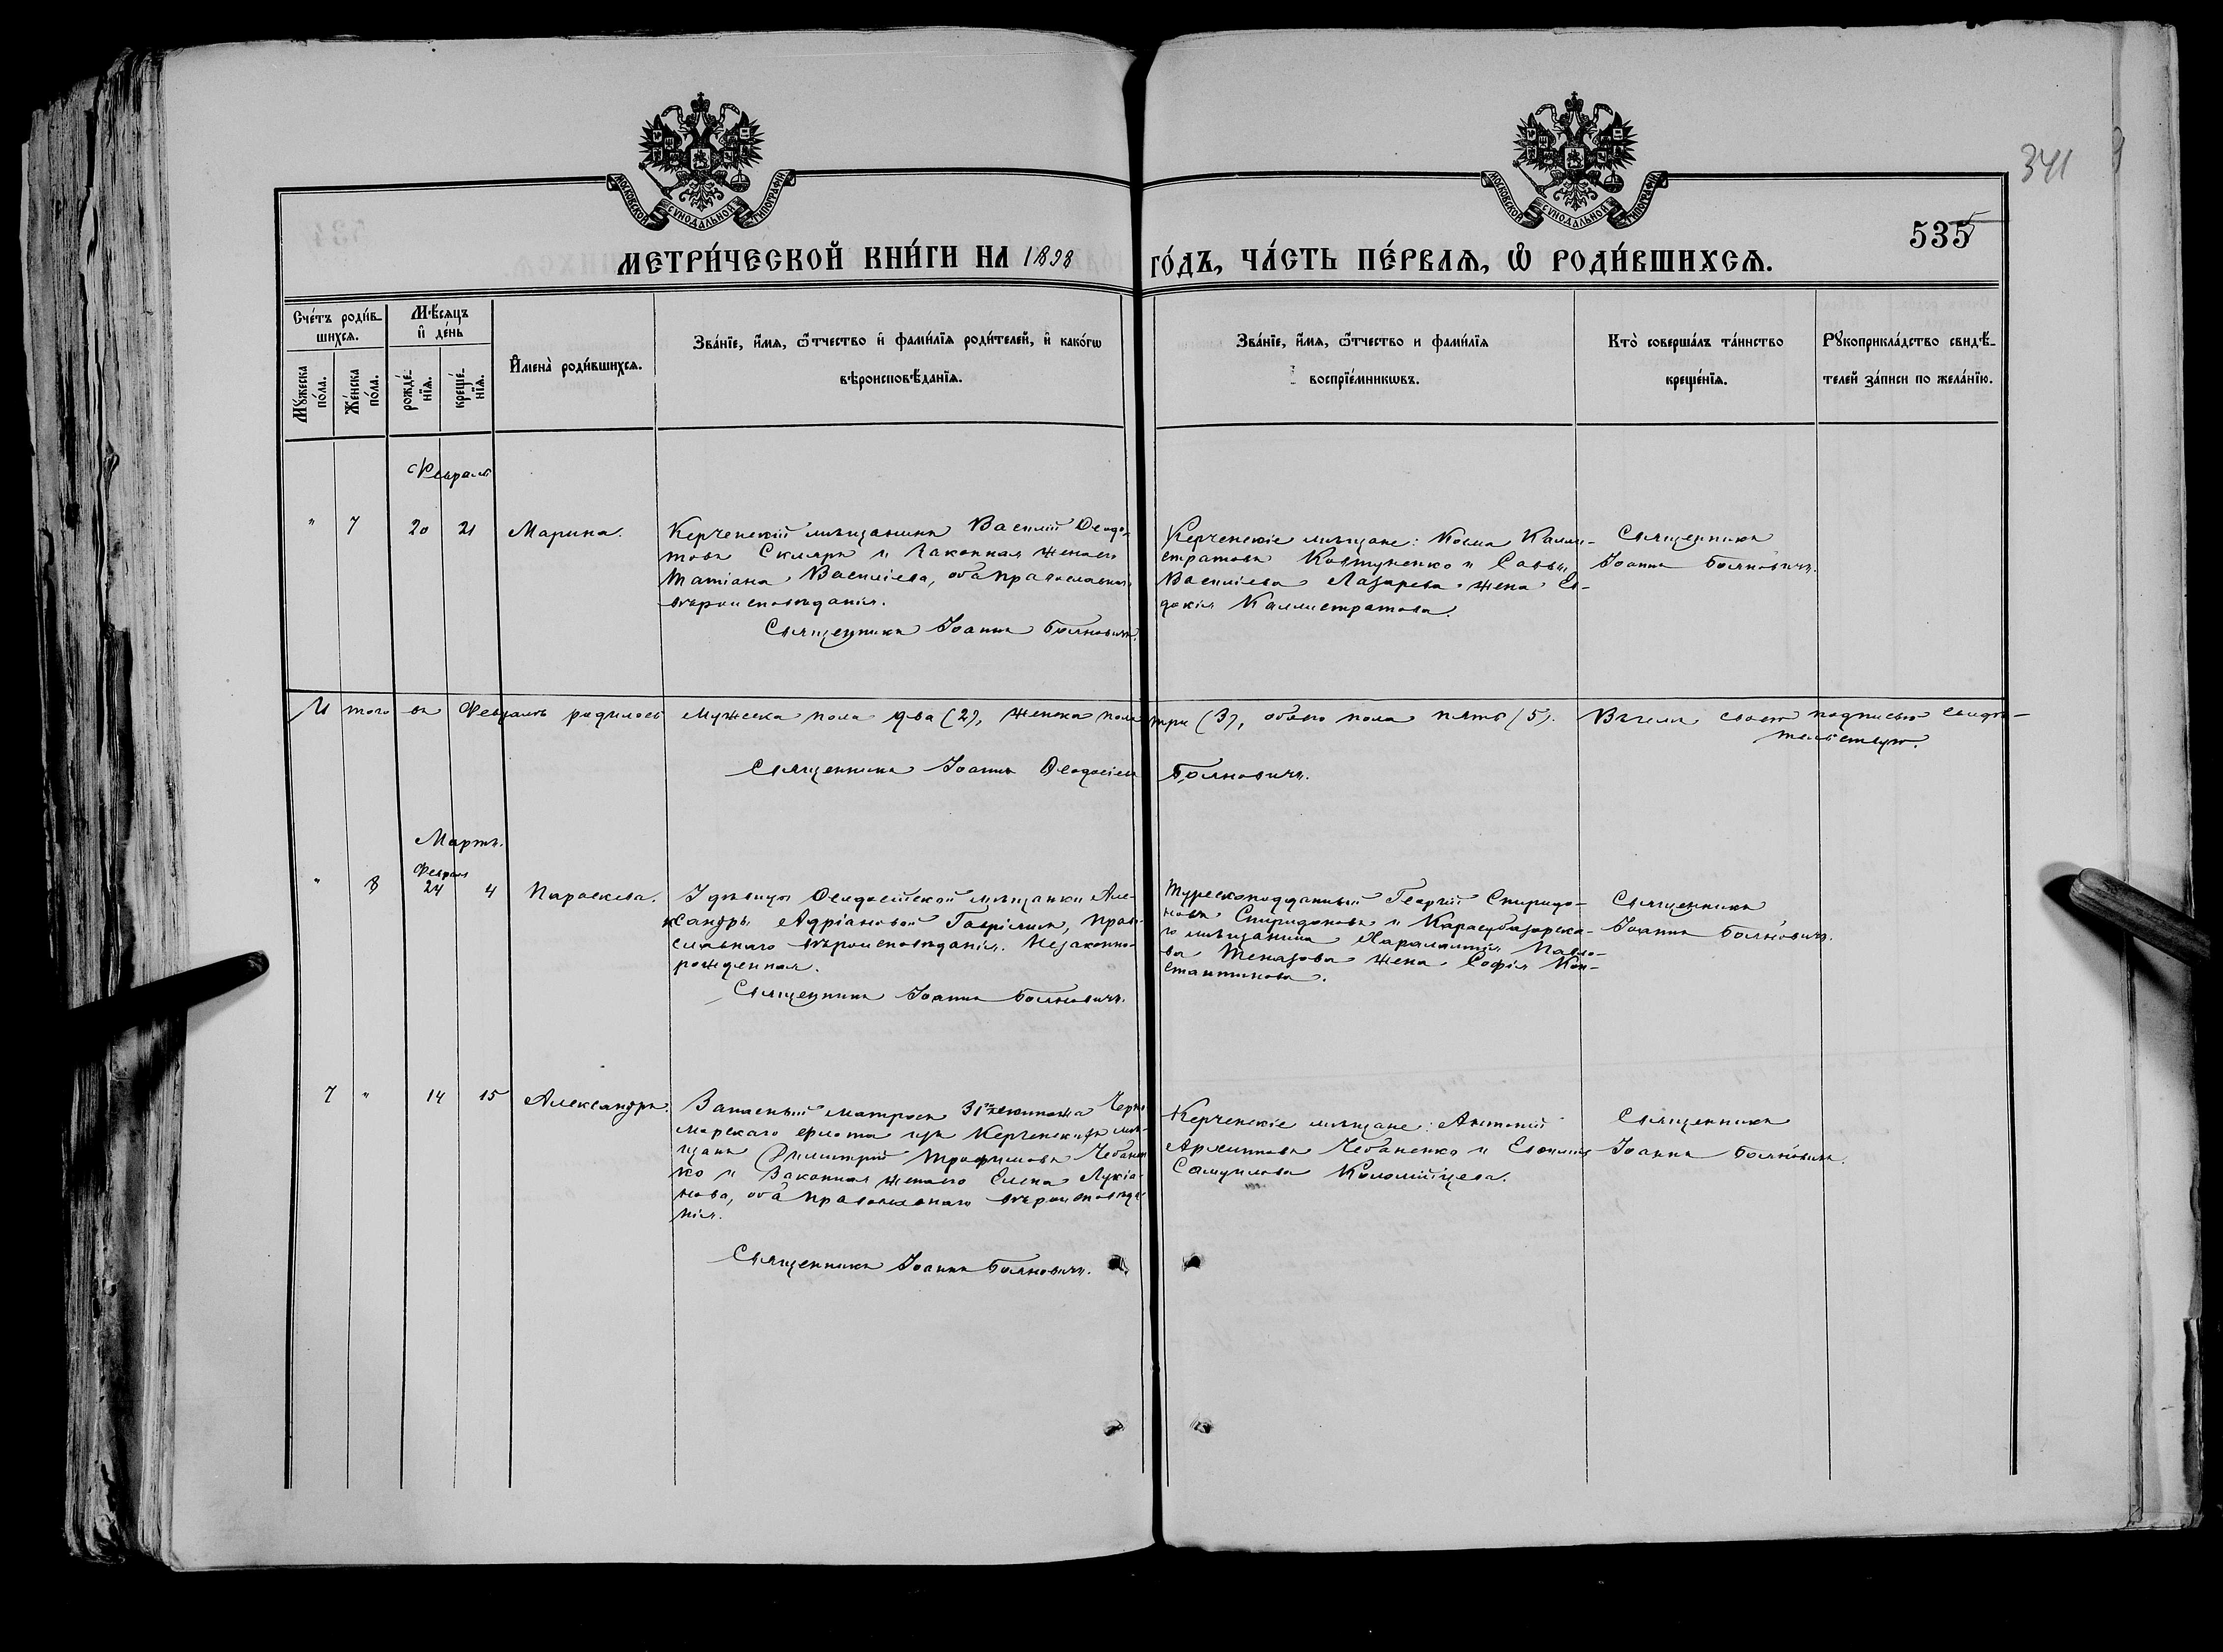 341
МОСКОВСКОЙ СУНОДАЛЬНОЙ ТИПОГРАФІИ
МОСКОВСКОЙ СУНОДАЛЬНОЙ ТИПОГРАФІИ
535
МЕТРИ́ЧЕСКОЙ КНИ́ГИ НА 1898 ГО́ДЪ, ЧА́СТЬ ПЕ́РВАѦ, Ѡ РОДИ́ВШИХСѦ.
Сче́тъ роди́в-
шихсѧ.
Мꙋжеска по́ла.
Же́нска по́ла.
Мѣ́сѧцъ
и҆ де́нь
рожде́-
нїѧ.
креще́-
нїѧ.
И҆мена̀ роди́вшихсѧ.
Зва́нїе, и҆́мѧ, ѻ҆́тчество и҆ фами́лїѧ роди́телей, и҆ како́гѡ
вѣроисповѣ́данїѧ.
Зва́нїе, и҆́мѧ, ѻ҆́тчество и фами́лїѧ
воспрїе́мникѡвъ.
Кто̀ соверша́лъ та́инство
креще́нїѧ.
Рꙋкоприкла́дство свидѣ́-
телей за́писи по жела́нїю.
Февраль
" 7 20 21 Марина.
Керченскій мѣщанинъ Василій Ѳеодо-
товъ Скляръ и законная жена его
Татіана Василіева, оба православнаго
вѣроисповѣданія.
Священникъ Іоаннъ Бояновичъ.
Керченскіе мѣщане: Косма Калли-
стратовъ Ковтуненко и Саввы
Василіева Лазарева жена Ев-
докія Каллистратова.
Священникъ
Іоаннъ Бояновичъ.
Итого въ Февралѣ родилось мужеска пола два (2), женска пола три (3), обоего пола пять (5). Въ чемъ своею подписью свидѣ-
тельствую.
Священникъ Іоаннъ Ѳеодосіевъ Бояновичъ.
Мартъ.
Февраля
" 8 24 4 Параскева.
У дѣвицы Ѳеодосійской мѣщанки Але-
ксандры Адріановой Гаврілюк, право-
славнаго вѣроисповѣданія. Незаконно-
рожденная.
Священникъ Іоаннъ Бояновичъ.
Турецкоподданный Георгій Спиридо-
новъ Спиридоновъ и Карасубазарска-
го мѣщанина Харалампія Павло-
ва Теназова жена Софія Кон-
стантинова.
Священникъ
Іоаннъ Бояновичъ.
7 " 14 15 Александръ.
Запасный матросъ 31го экипажа Черно
морскаго флота изъ Керченскихъ мѣ-
щанъ Димитрій Трофимовъ Чебанен
ко и законная жена его Елена Лукіа-
нова, оба православнаго вѣроисповѣда
нія.
Священникъ Іоаннъ Бояновичъ.
Керченскіе мѣщане: Антоній
Архиповъ Чебаненко и Евфимія
Самуилова Коломійцева.
Священникъ
Іоаннъ Бояновичъ.